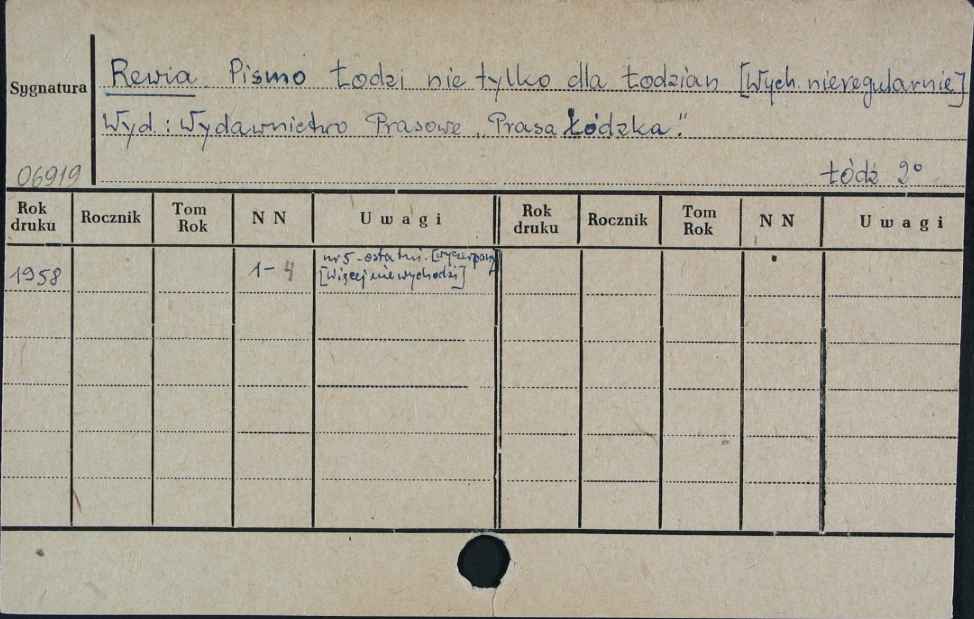 Sygnatura
Rewia Pismo Łodzi nie tylko dla Łodzian [Wych. nieregularnie]
Wyd.: Wydawnictwo Prasowe „Prasa Łódzka".
06919
Łódź 2°
Rok druku Rocznik Tom Rok N N Uwagi Rok druku Rocznik Tom Rok N N Uwagi
1958 1-4 nr 5 - ostatni. [wyczerpany]
[Więcej nie wychodzi]